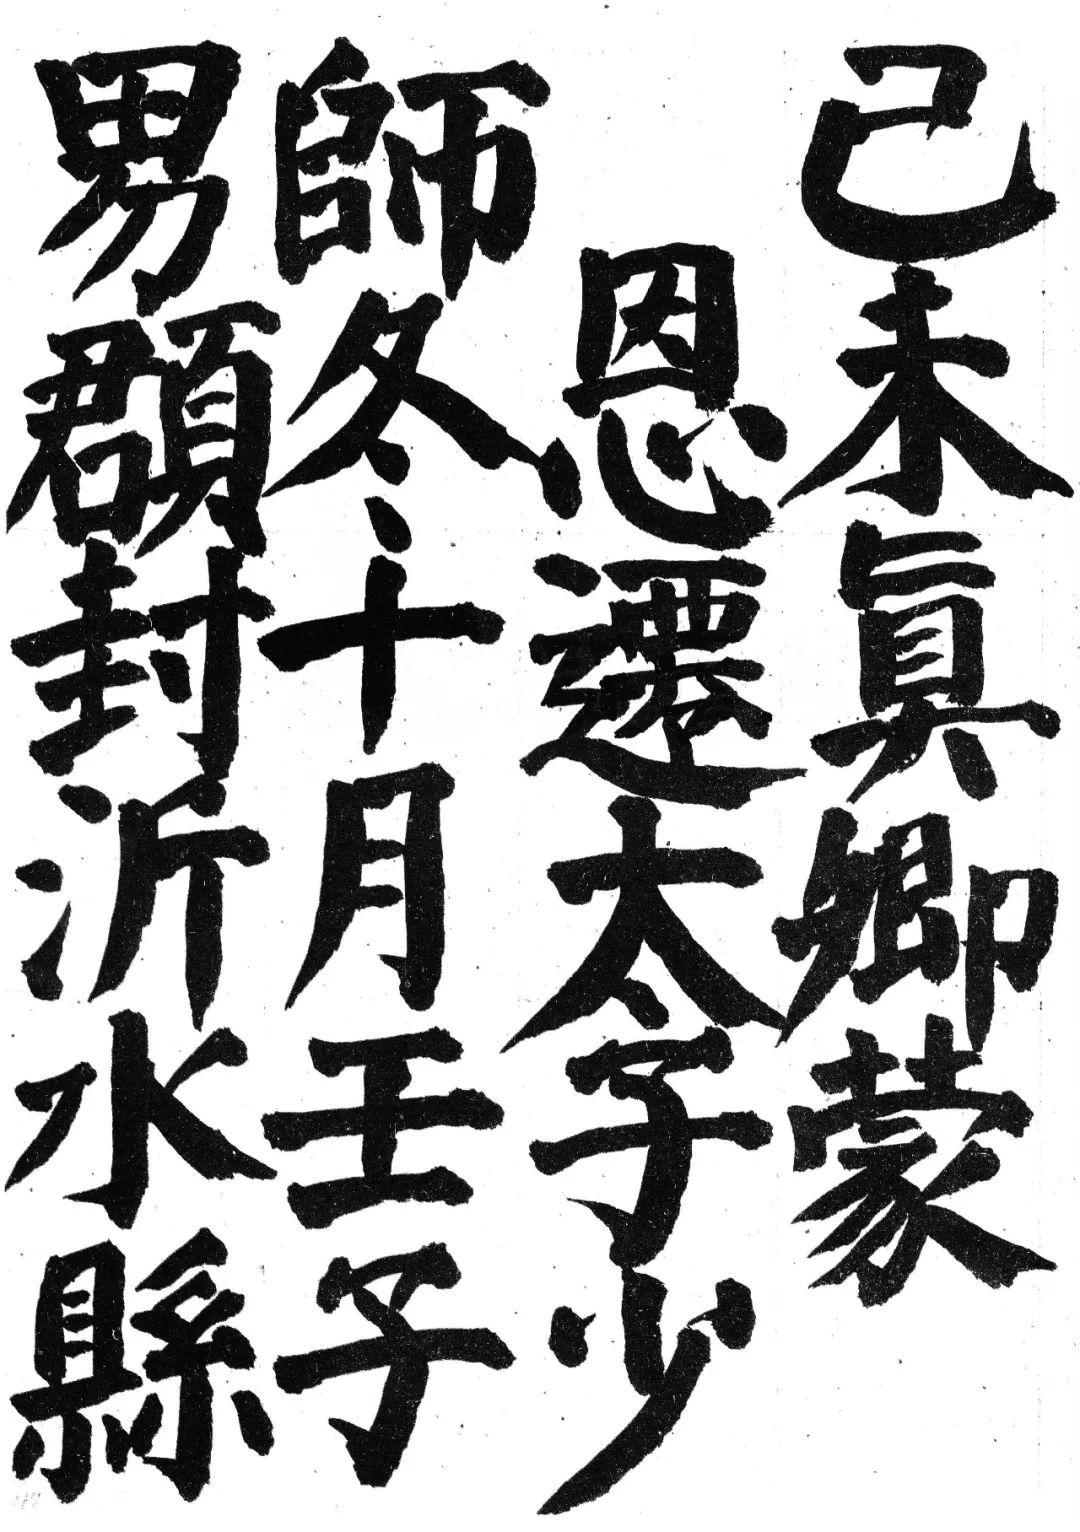 己未真卿蒙
恩遷太子少
師冬十月壬子
男頵封沂水縣